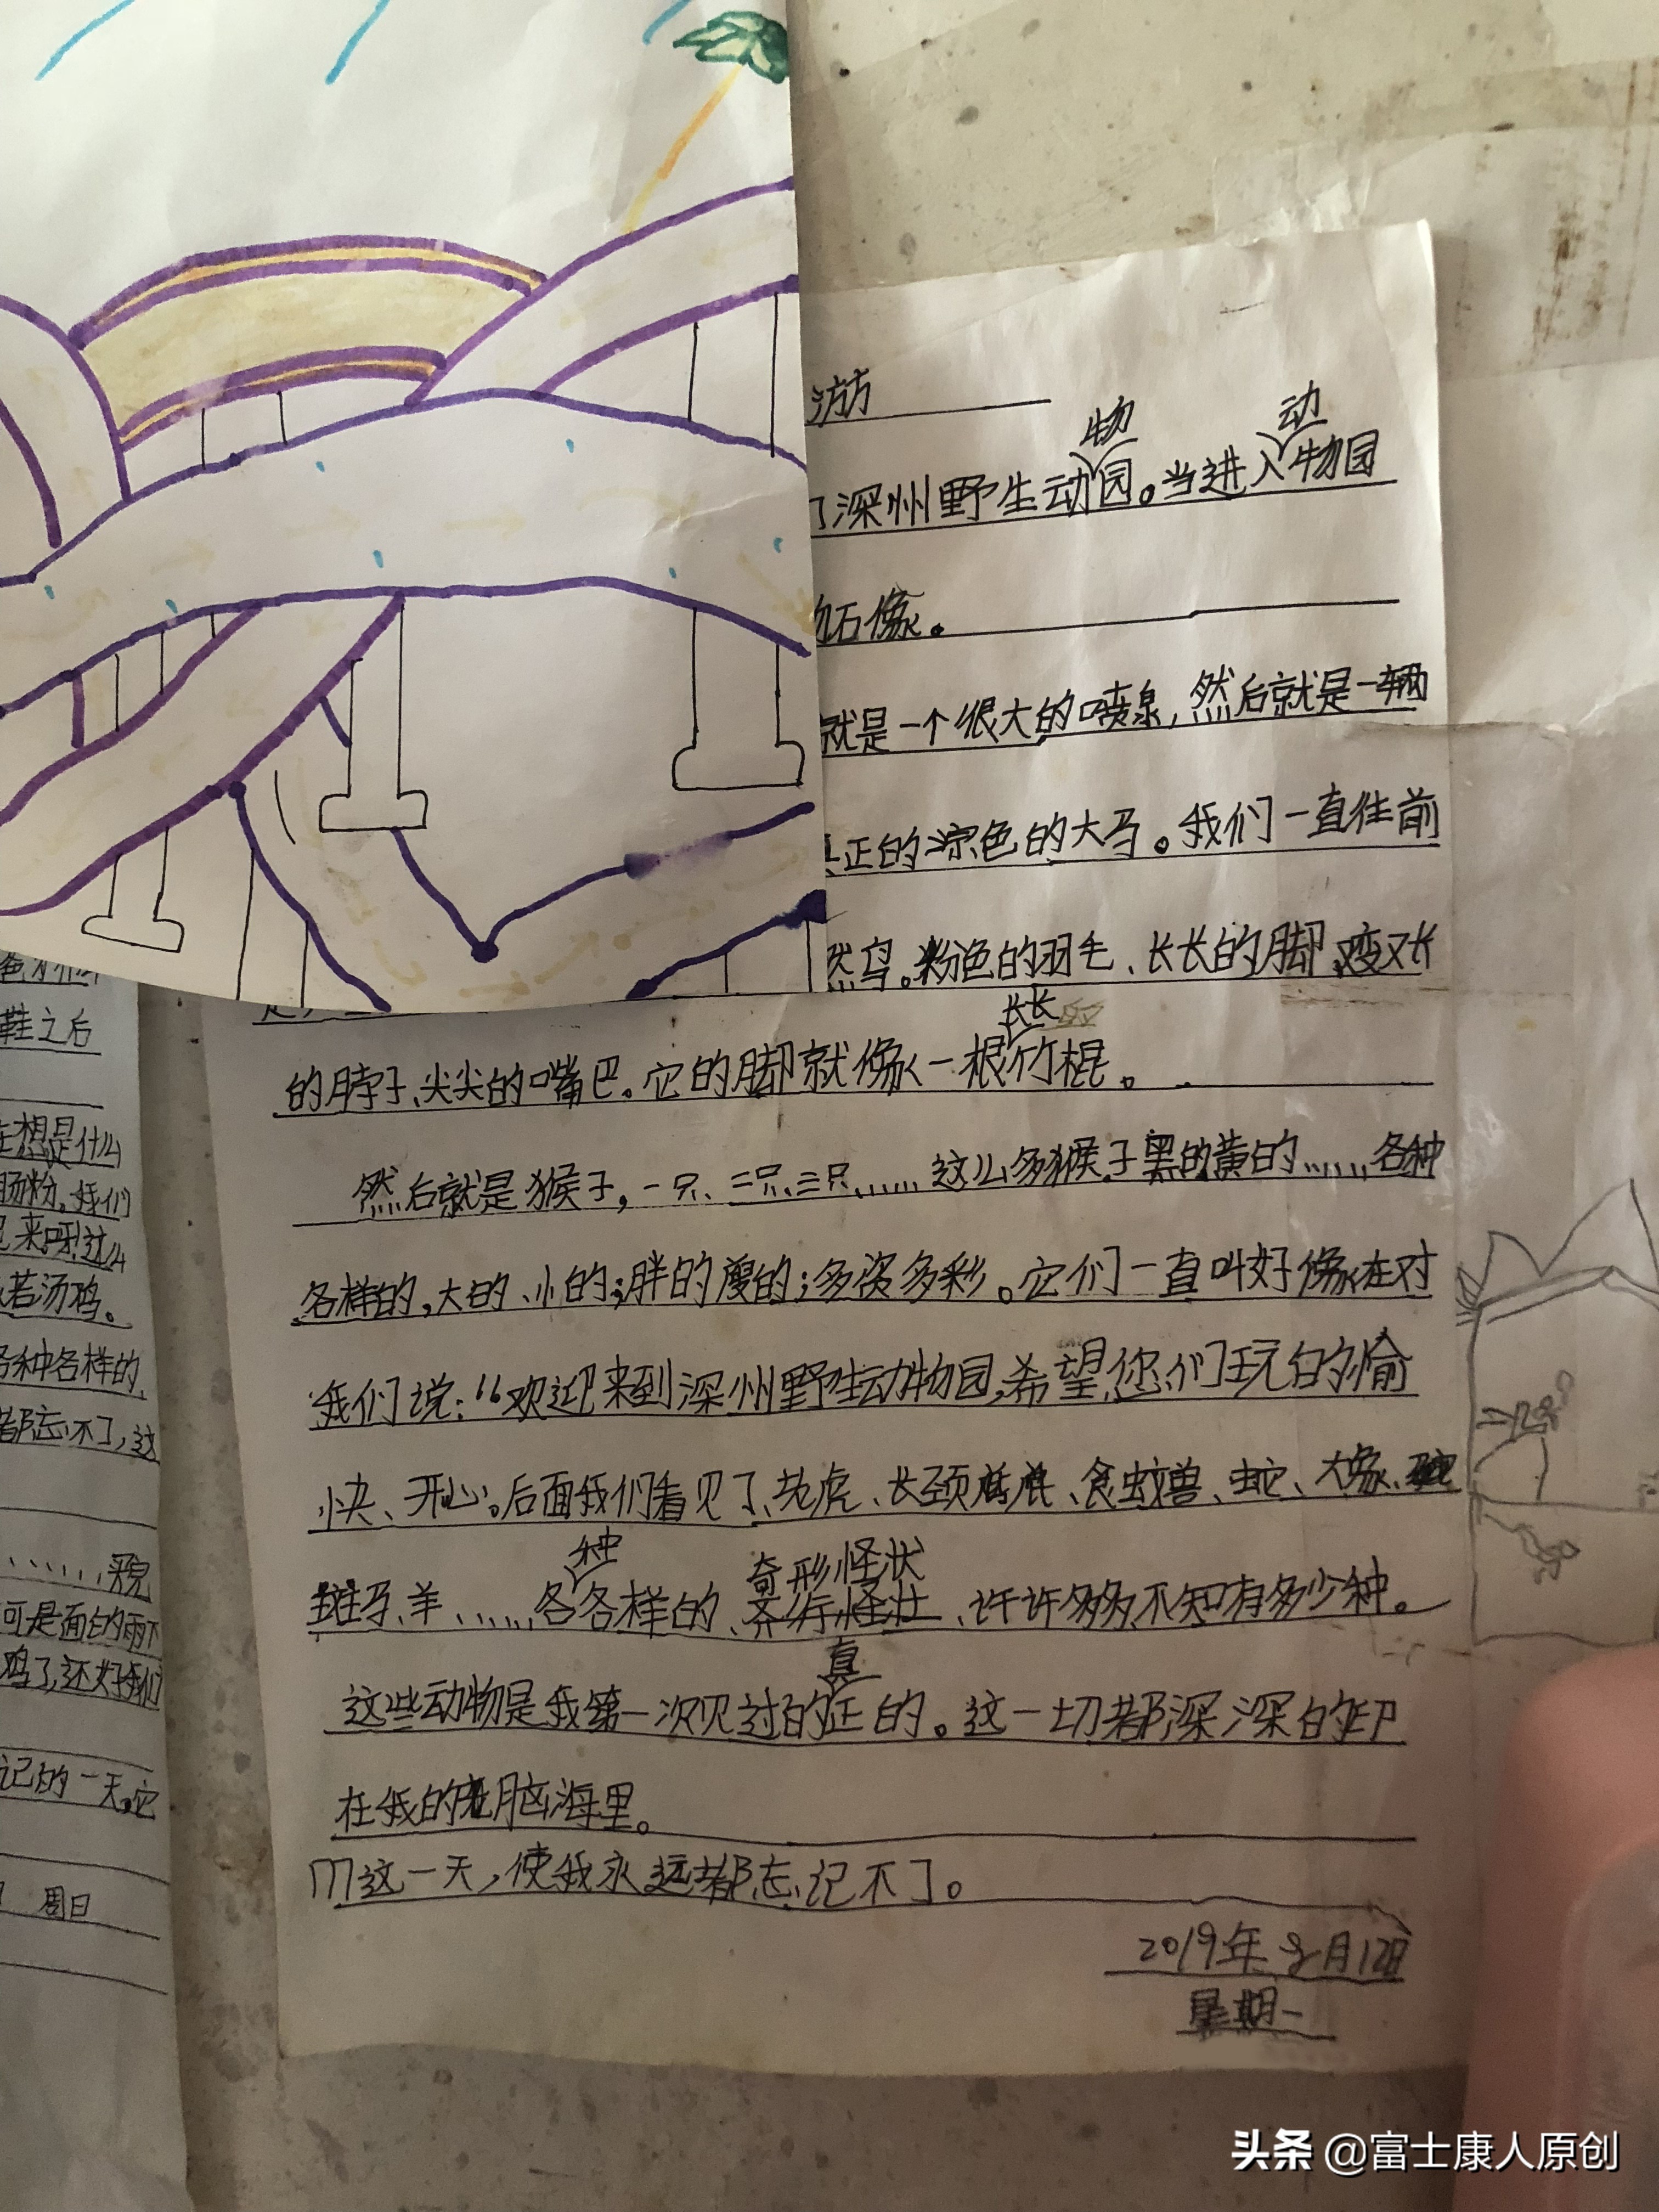 物 动
深州野生动园。当进入物园
石像。
就是一个很大的喷泉，然后就是一辆
正的淙色的大马。我们一直往前
然鸟。粉色的羽毛、长长的脚、又长
长长的
的脖子、尖尖的嘴巴。它的脚就像一根竹棍。
然后就是猴子，一只、二只、三只、、、、、、这么多猴子黑的黄的、、、、、、各种
各样的，大的、小的；胖的瘦的；多姿多彩。它们一直叫好像在对
我们说：“欢迎来到深州野生动物园，希望您们玩的愉
快、开心。后面我们看见了、老虎、长颈鹿、食蚁兽、蛇、大象、
种 奇形怪状
斑马、羊、、、、、、各各样的、齐行怪壮、许许多多不知有多少种。
真
这些动物是我第一次见过的正的。这一切都深深的印
在我的脑海里。
这一天，使我永远都忘记不了。
2019年 月12日
星期一
鞋之后
在想是什么
肠粉。我们
来呀!过么
若汤鸡。
各种各样的
都忘不了，这
、、、、、、
可是面的雨下
鸡了，还好我们
记的一天。它
周日
头条 @富士康人原创